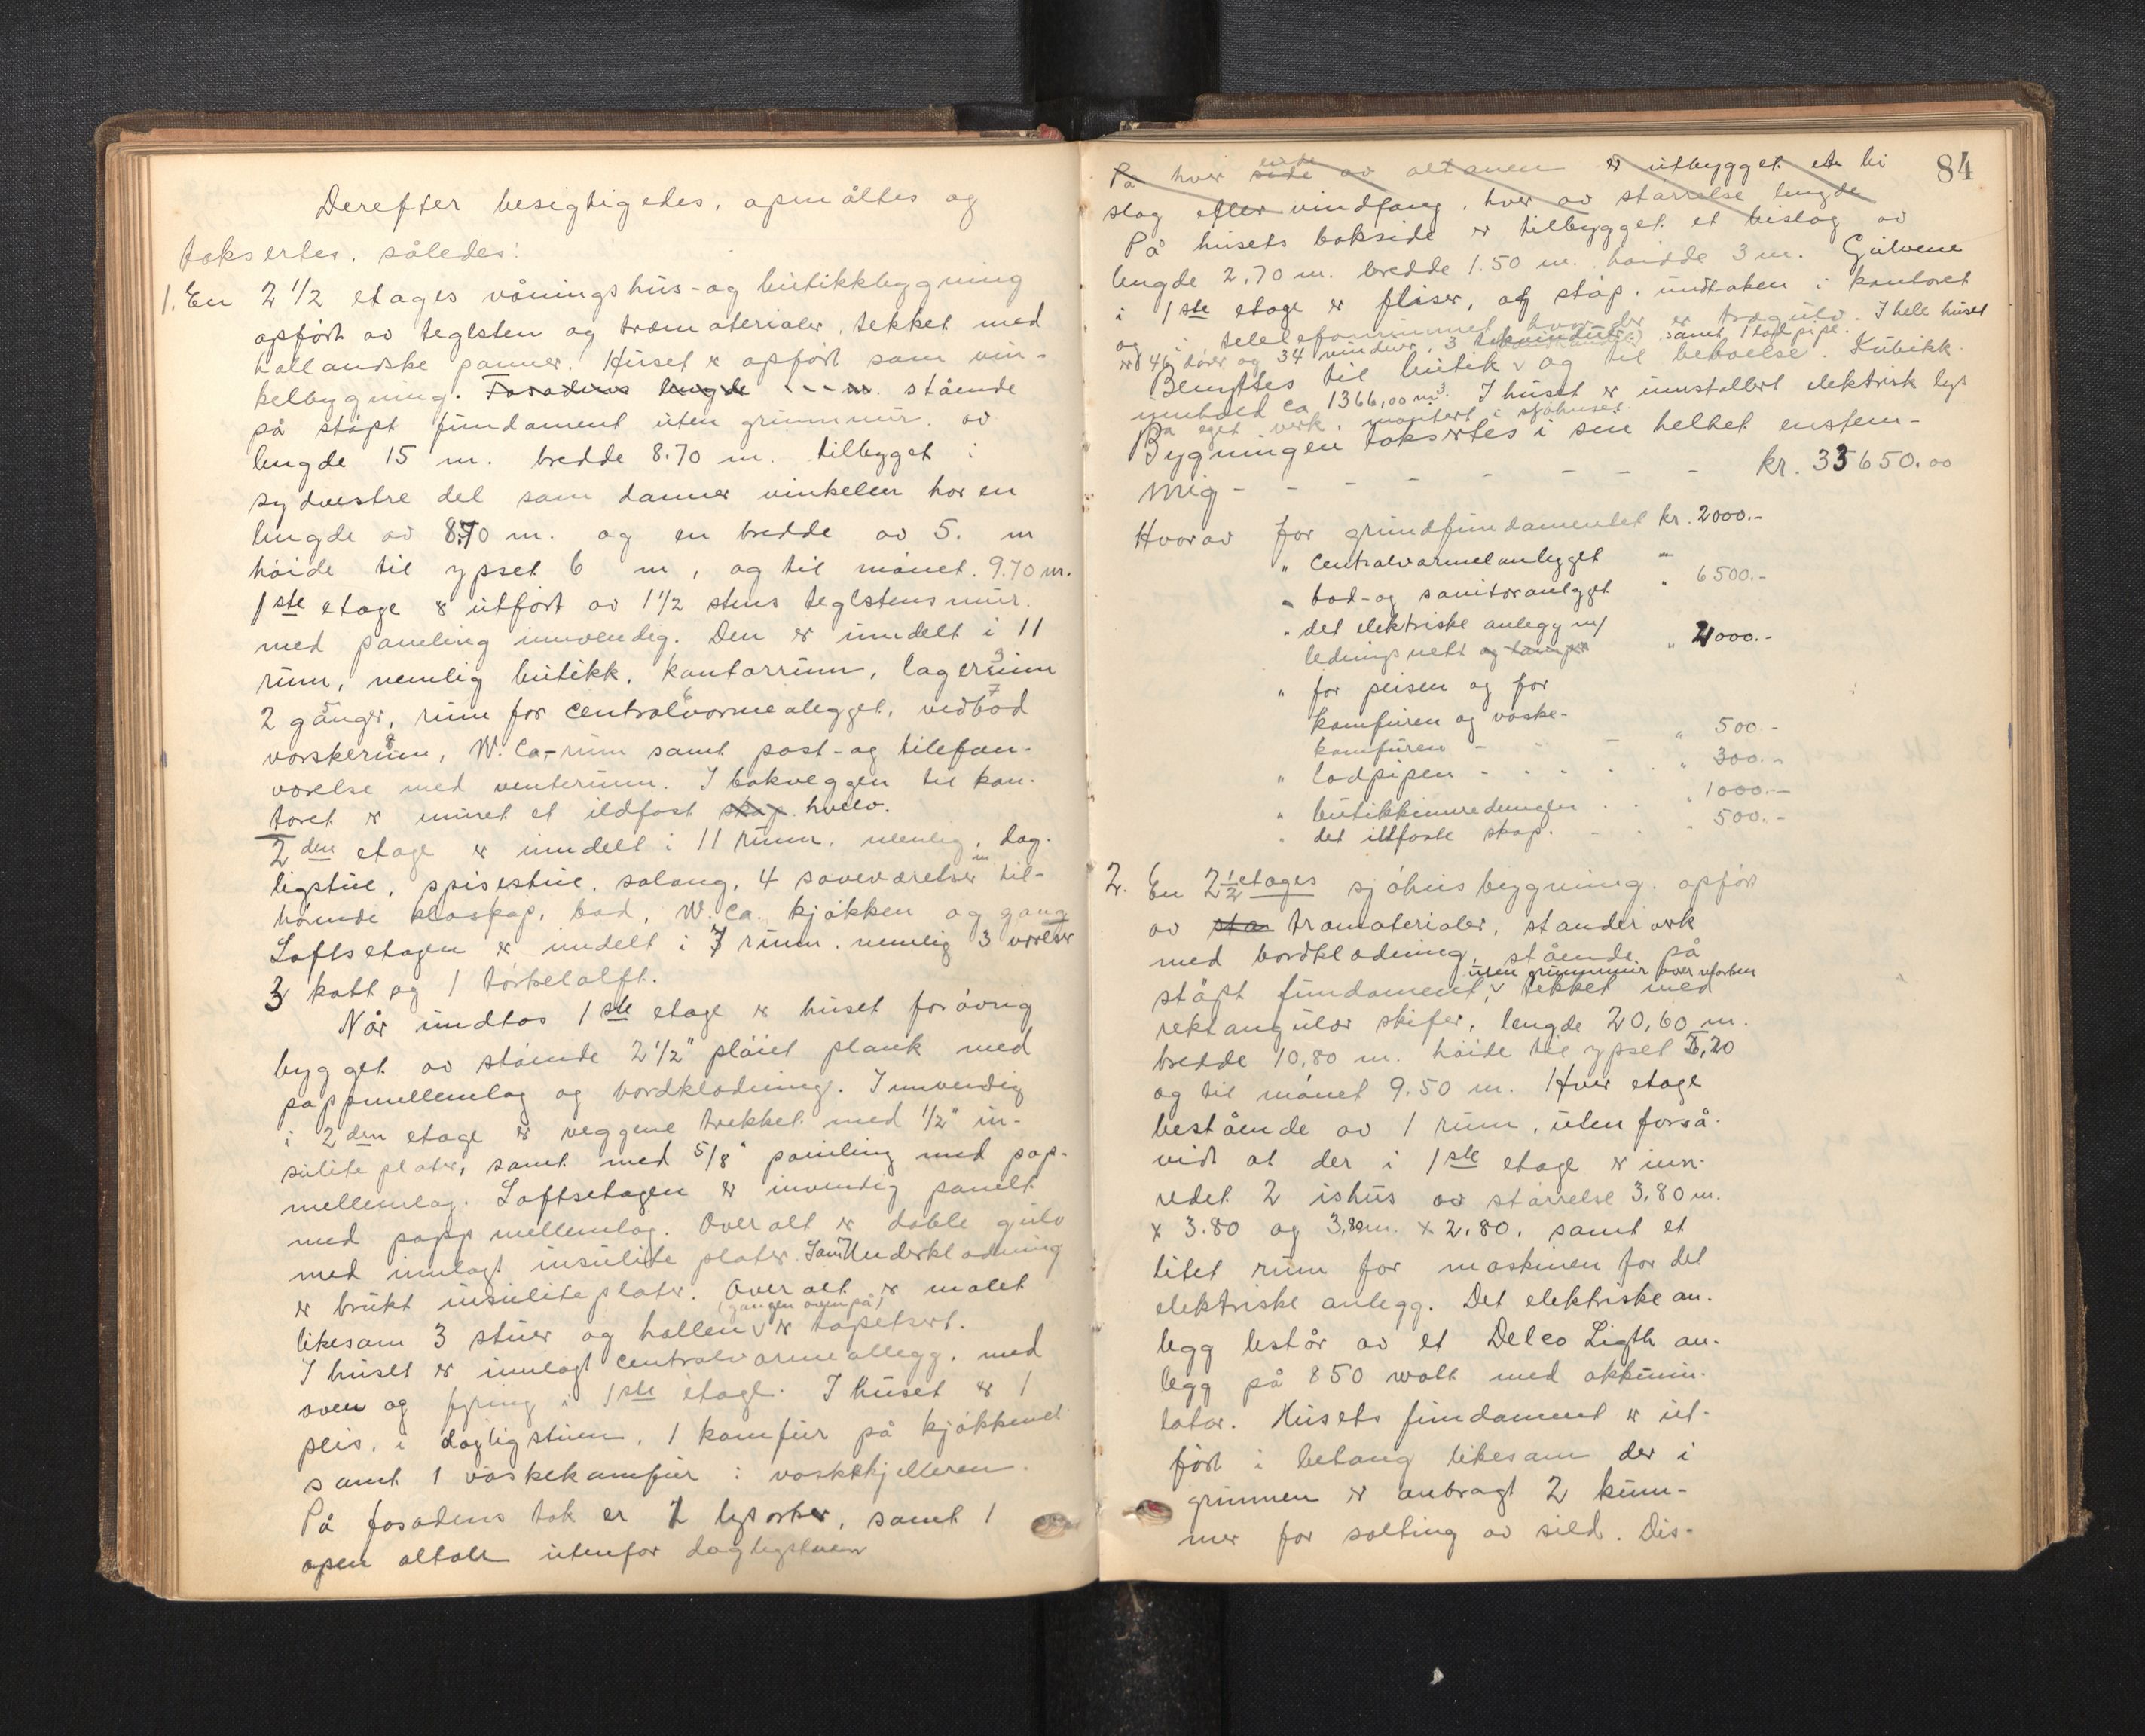 Derefter besigtigedes, opmåltes og
taksertes, således:
1. En 2 1/2 etages våningshus- og butikkbygning
opført av teglsten og træmaterialer, tekket med
hollandske panner. Huset er opført som vin-
kelbygning. Fasadens lengde - - - m. stående
på støpt fundament uten grunnmur. av
lengde 15 m. bredde 8.70 m. tilbygget i
sydvestre del som danner vinkelen har en
lengde av 8.70 m. og en bredde av 5. m
høide til gpset 6 m, og til mønet. 9.70 m.
1ste etage er utført av 1 1/2 stens teglstensmur.
med paneling innvendig. Den er inndelt i 11
rum, nemlig butikk, kontorrum, lagerrum
2 gånger, rum for centralvarmealegget, vedbod
vaskerum, W.Ca-rum samt post- og tilefon-
værelse med venterum. I bakveggen til kon-
toret er muret et ildfast skap. hvelv.
2den etage er inndelt i 11 rum. nemlig, dag-
ligstue, spisestue, salong, 4 soveværelser m til-
hørende kloskap, bad, W.Ca. kjøkken og gang
Loftsetagen er inndelt i 7 rum. nemlig 3 værelser
3 kott og 1 tørkeloft.
Når undtas 1ste etage er huset forøvrig
bygget av stående 2 1/2" pløiet plank med
pappmellemlag og bordklædning. Innvendig
i 2den etage er veggene trekket med 1/2" in-
sulite plater, samt med 5/8" panling med pap-
mellemlag. Loftsetagen er invendig panelt
med papp mellemlag. Overalt er doble gulv
med innlagt insulite plater. Samt Underklædning
er brukt insuliteplater. Overalt er malet
(gangen ovenpå)
likesom 3 stuer og hallen v er tapetsert.
I huset er innlagt centralvarmeallegg. med
oven og fyring i 1ste etage. I huset er 1
peis, i dagligstuen, 1 komfur på kjøkkenet
samt 1 vaskekomfur i vaskekjelleren.
På fasadens tak er 2 lysarker, samt 1
open altan utenfor dagligstuen
84
ende
På hver side av altanen er utbygget et bi
slag eller vindfang, hver av størrelse lengde
På husets bakside er tilbygget et bislag av
lengde 2,70 m. bredde 1.50 m. høidde 3 m. Gulvene
i 1ste etage er fliser, og støp, undtaken i kontoret
og i telelefonrummet hvor der er trægulv. I hele huset
er 46 dører og 34 vinduer, 3 takvinduer samt 1 lodpipe.
Benyttes til butik v og til beboelse. Kubikk-
innhold ca 1366,00 m3. I huset er innstallert elektrisk lys
fra eget verk, montert i sjøhuset.
Bygningen taksertes i sin helhet enstem-
mig - - - - - - - kr. 33650.00
Hvorav for grundfundamentet kr. 2000.-
" centralvarmeanlegget "
" bad- og sanitæranlegget " 6500.-
" det elektriske anlegg m/
ledningsnett og lamper " 2000.-
" for peisen og for
komfuren og vaske-
komfuren - - - " 500.-
" lodpipen - - . . " 300.-
" butikkinnredningen . . " 1000.-
" det ildfaste skap. - - " 500.-
2. En 2 1/2 etages sjøhusbygning. opført
av sta træmaterialer, standerverk
med bordklædning, stående på
uten grunnmur over
støpt fundament, v tekket med
rektangulær skifer, lengde 20,60 m.
bredde 10,80 m. høide til gpset 5,20
og til mønet 9.50 m. Hver etage
bestående av 1 rum, uten forså-
vidt at der i 1ste etage er inn-
redet 2 ishus av størrelse 3,80 m.
x 3.80 og 3,80 m. x 2.80. samt et
litet rum for maskinen for det
elektriske anlegg. Det elektriske an-
legg består av et Delco Ligth an-
legg på 850 watt med akkumu-
lator. Husets fundament er ut-
ført i betong likesom der i
grunnen er anbragt 2 kum-
mer for salting av sild. Dis-